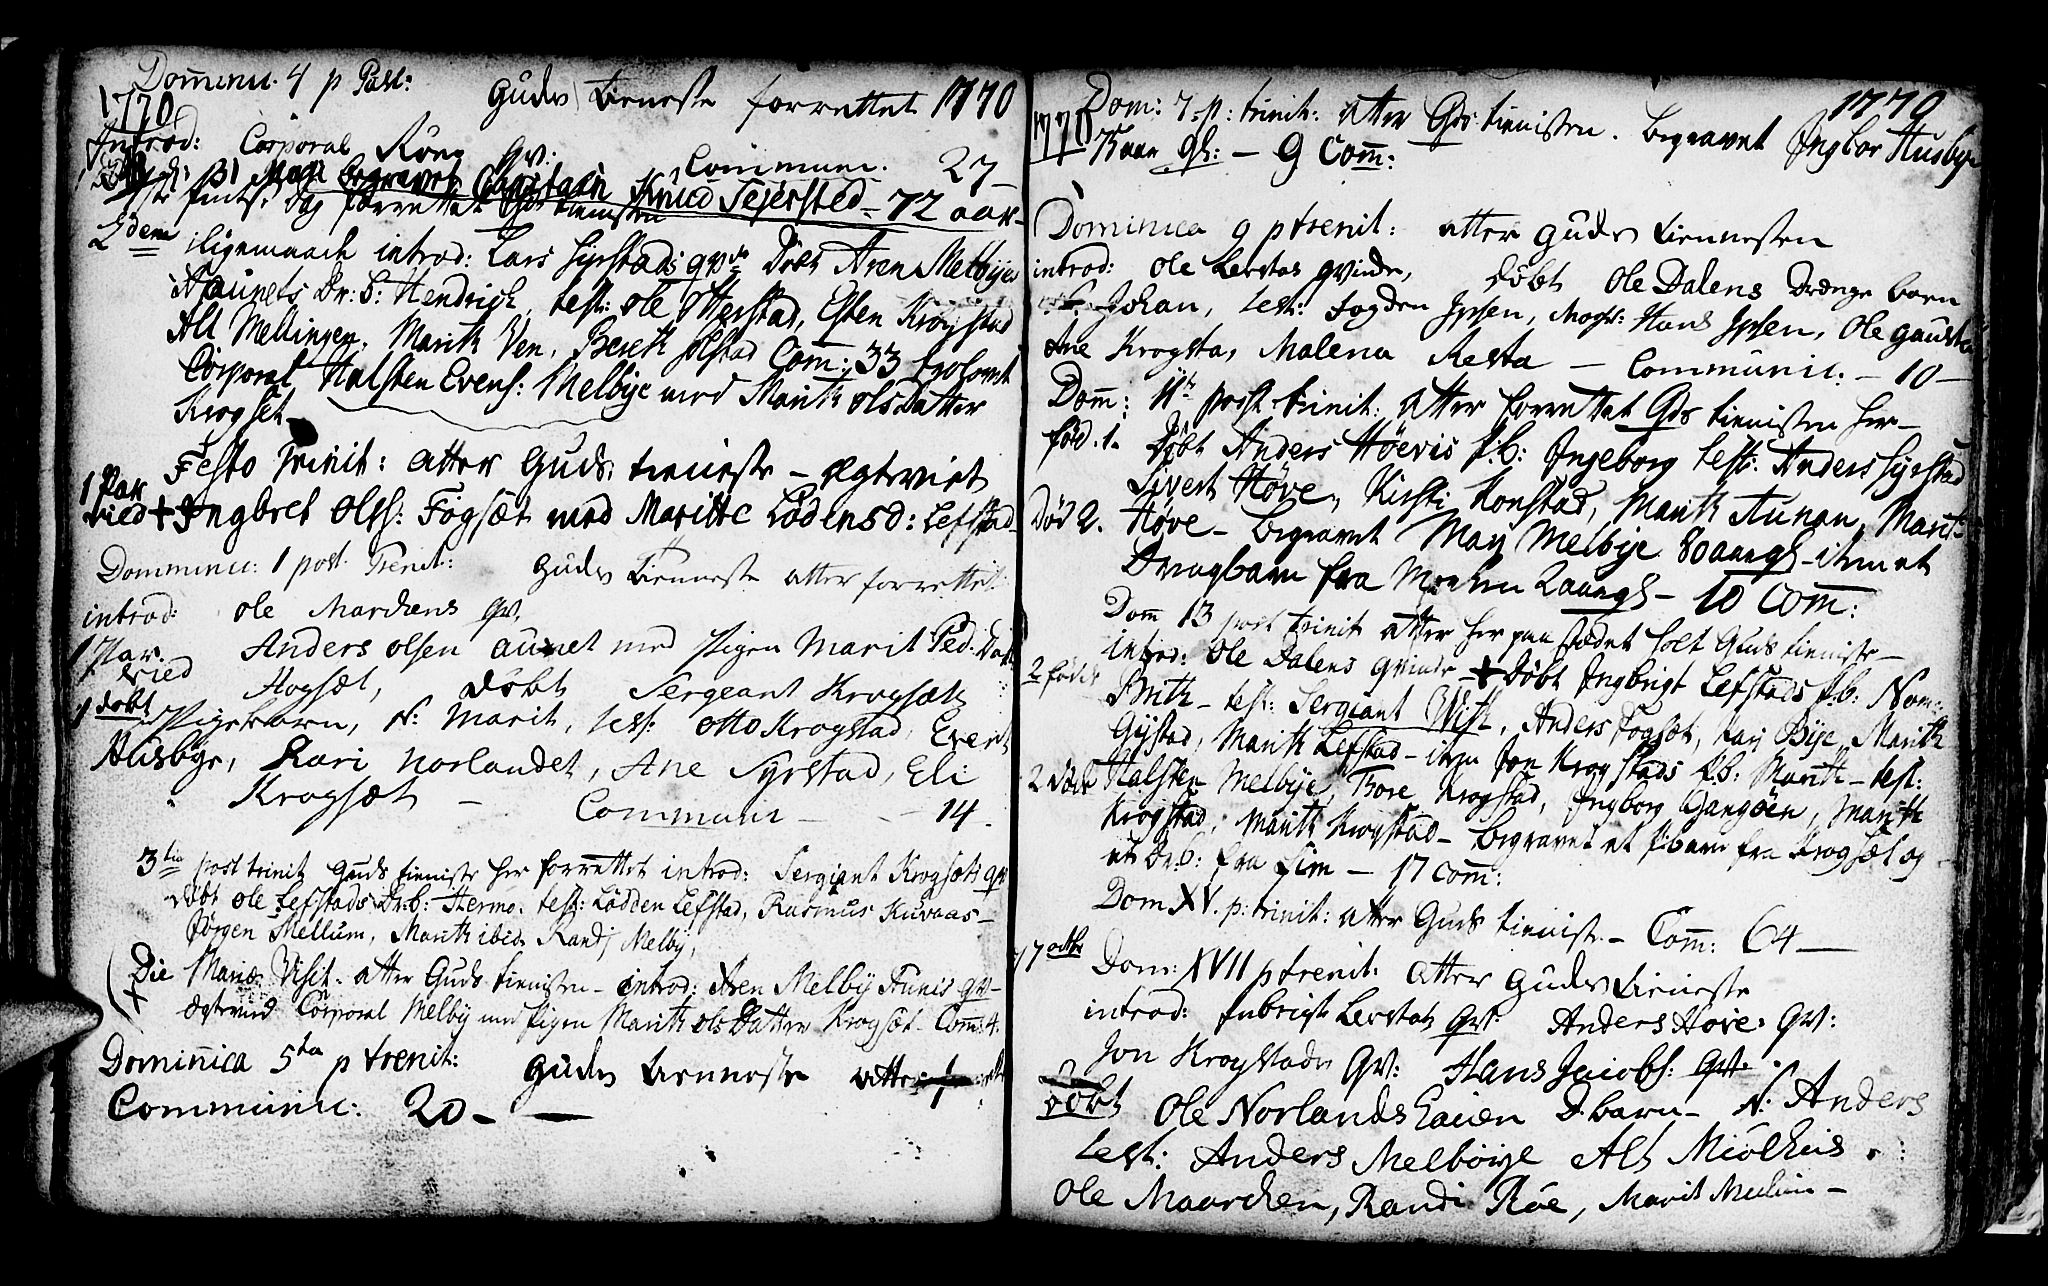 Dominic. 4 p Pasc:
1770 Guds tieneste forrettet 1770
Introd: Corporal Röng qv: Communic. 27
31 Maji begravet Capitain Knud Sejersted – 72 aar
1ste pintse dag forrettet Gds tienisten
2dem ligemaade introd: Lars Syrstads qv Döbt Aren Melbyes
Haunets Dr: b: Hendrich, test: Ole Otterstad, Esten Krogstad
Alt Mellingen, Marith Ven, Bereth Solstad Com: 33 trolovet
Corporal Halsten Evens: Melbye med Marith olsdatter
Krogset
Festo Trinit: atter Guds tieneste – ægteviet
1 Par
vied + Ingbret Olss: Fogsæt med Maritte Lödensd: Lefstad
Domminic: 1 post. Trenit: Guds Tienneste atter forrettet
introd: Ole Marchens qv.
1 Par. Anders olsen aunet med Pigen Marit Ped: Dat
vied Hogsæt, döbt Sergeant Krogsæts
1 döbt Pigebarn, N: Marit, test: Otto Krogstad, Evert
Husbye, Kari Norlandet, Ane Syrstad, Eli
Krogsæt – Communic – 14.
3tia post trinit Guds tieniste her forrettet introd: Sergiant Krogsæts qv
döbt Ole Lefstads Dr: b: Hermo. test: Lödden Lefstad, Rasmus Kuvaas –
Jörgen Mellum, Marith ibid Randj Melby,
Die Mariæ Visit. atter Guds tienisten – introd: Aren Melby Trunis qv –
ægteviid Corporal Melby med pigen Marith ols datter Krogsæt – Comm: 4.
Dominica 5ta p trenit: Guds Tienneste atter
Communic: 20 –
1770 Dom: 7. p: trinit: atter Gds tienisten. begravet Ingbor Husbye 1770
75 aar gl: – 9 Com:
Dominica 9 p trenit: atter Guds Tiennesten
introd: Ole Levstas qvinde, döbt Ole Dalens Drænge barn
Johan, test: fogden Ipsen, Mogr: Hans Ipsen, Ole Gausta
Ane Krogsta, Malena Resta – Communic. – 10 –
Dom: 11te post trinit: atter forrettet Gds tienisten her –
föd. 1. Döbt Anders Höevis P. b: Ingeborg test: Anders Syrstad
Sivert Höve, Kirsti Konstad, Marith Aunan, Marit
Död 2. Höve – begravet Marj Melbye 80 aar gl – item et
Drængbarn fra Moehen 2 aar gl – 10 Com:
Dom 13 post trinit atter her paa stædet holt Guds tieniste –
introd: Ole Dalens qvinde + Döbt Ingbrigt Lefstads P. b: Nom:
2 födde Brith – test: Sergeant Wist, Anders Fogsæt, Karj Bye, Marith
Gystad, Marith Lefstad – item Jon Krogstads P. b: Marith – test:
2 döde Halsten Melbye, Tore Krogstad, Ingborg Gangöen, Marith
Krogstad, Marith Krogstad – begravet et P: barn fra Krogsæt og
et Dr. b: fra Lim – 17 Com:
Dom XV. p: trinit: atter Guds tieniste – Com: 64 –
7 octbr Dom: XVII p trenit: atter Guds tieneste
introd: Inbrigt Levstads qv: Anders Höve: qv:
Jon Krogstads qv: Hans Jacobs: qv:
döbt Ole Norlands Eaien D. barn – N: Anders
test: Anders Melböye Alt Miölhus.
Ole Maarchen, Randi Röe, Marit Melum –